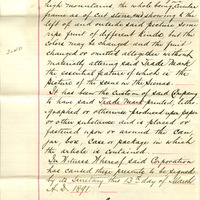 high mountains, the whole being under
frame as of cut stone, and showing to the
left of and outside said picture some
ripe fruit of different kinds, but the
colors may be changed and the fruit
changed or omitted altogether without
materially altering said Trade Mark
the essential feature of which is the
picture of the scene in the Sierras.
It has been the custom of said Company
to have said Trade Mark printed, litho-
graphed or otherwise produced upon paper
or other substance and is placed or
fastened upon or around the can,
jar, box, case or package in which
the article is contained.
In Witness Whereof said Corporation
has caused these presents to be signed
by its Secretary this 13th day of March
A.D. 1891.